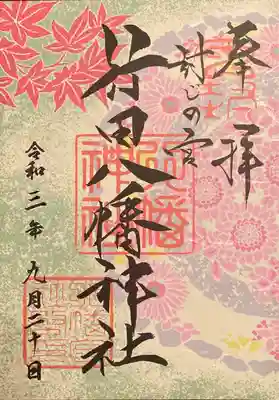 奉拝
封じの宮
行田八幡神社
令和三年 九月二十日